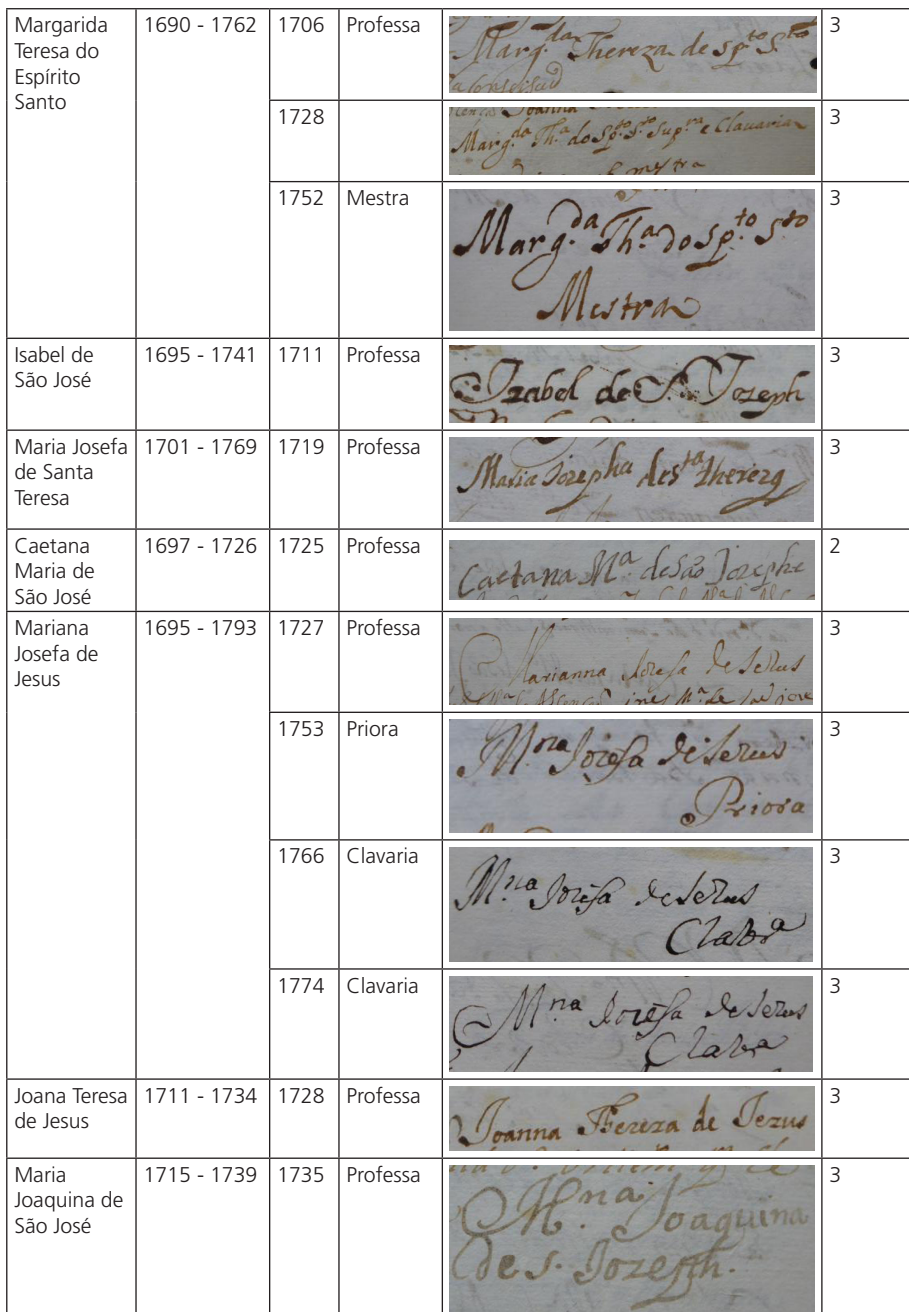 Margarida
Teresa do
Espírito
Santo
1690 - 1762
1706
Professa
Marg.da Thereza de Sp.to S.to
3
1728
Marg.da Th.a do Sp.to S.to Sup.ra e Clauaria
Mestra
3
1752
Mestra
Marg.da Th.a do Sp.to S.to
Mestra
3
Isabel de
São José
1695 - 1741
1711
Professa
Izabel de S. Jozeph
3
Maria Josefa
de Santa
Teresa
1701 - 1769
1719
Professa
Maria Jozepha des.ta thereza
3
Caetana
Maria de
São José
1697 - 1726
1725
Professa
Caetana M.a desão Jozephe
2
Mariana
Josefa de
Jesus
1695 - 1793
1727
Professa
Marianna Jozefa de Jezus
3
1753
Priora
M.na Jozefa de Jezus
Priora
3
1766
Clavaria
M.na Jozefa de Jezus
Clabr.a
3
1774
Clavaria
M.na Jozefa de Jezus
Clabr.a
3
Joana Teresa
de Jesus
1711 - 1734
1728
Professa
Joanna Thereza de Jezus
3
Maria
Joaquina de
São José
1715 - 1739
1735
Professa
M.na Joaquina
de s. Jozeph.
3